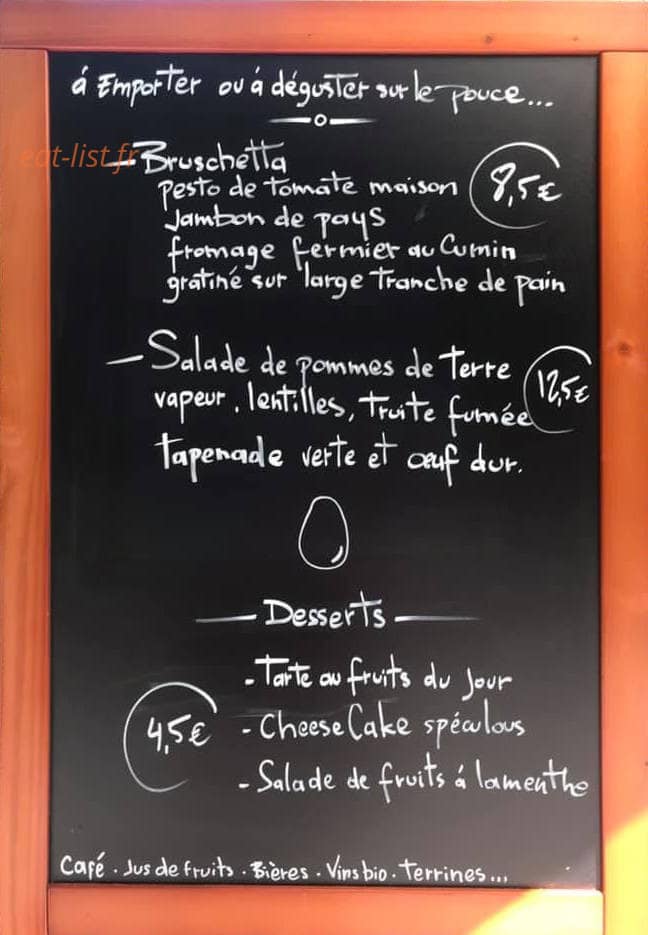 á Emporter ou á déguster sur le pouce...
eat-list.fr
- Bruschetta
pesto de tomate maison
8,5€
Jambon de pays
fromage fermier au Cumin
gratiné sur large Tranche de pain
- Salade de pommes de Terre
12,5€
vapeur, lentilles, Truite fumée
Tapenade verte et œuf dur.
- Desserts -
- Tarte au fruits du Jour
4,5€
- CheeseCake spéculous
- Salade de fruits á la menthe
Café . Jus de fruits . Bières . Vins bio . Terrines...